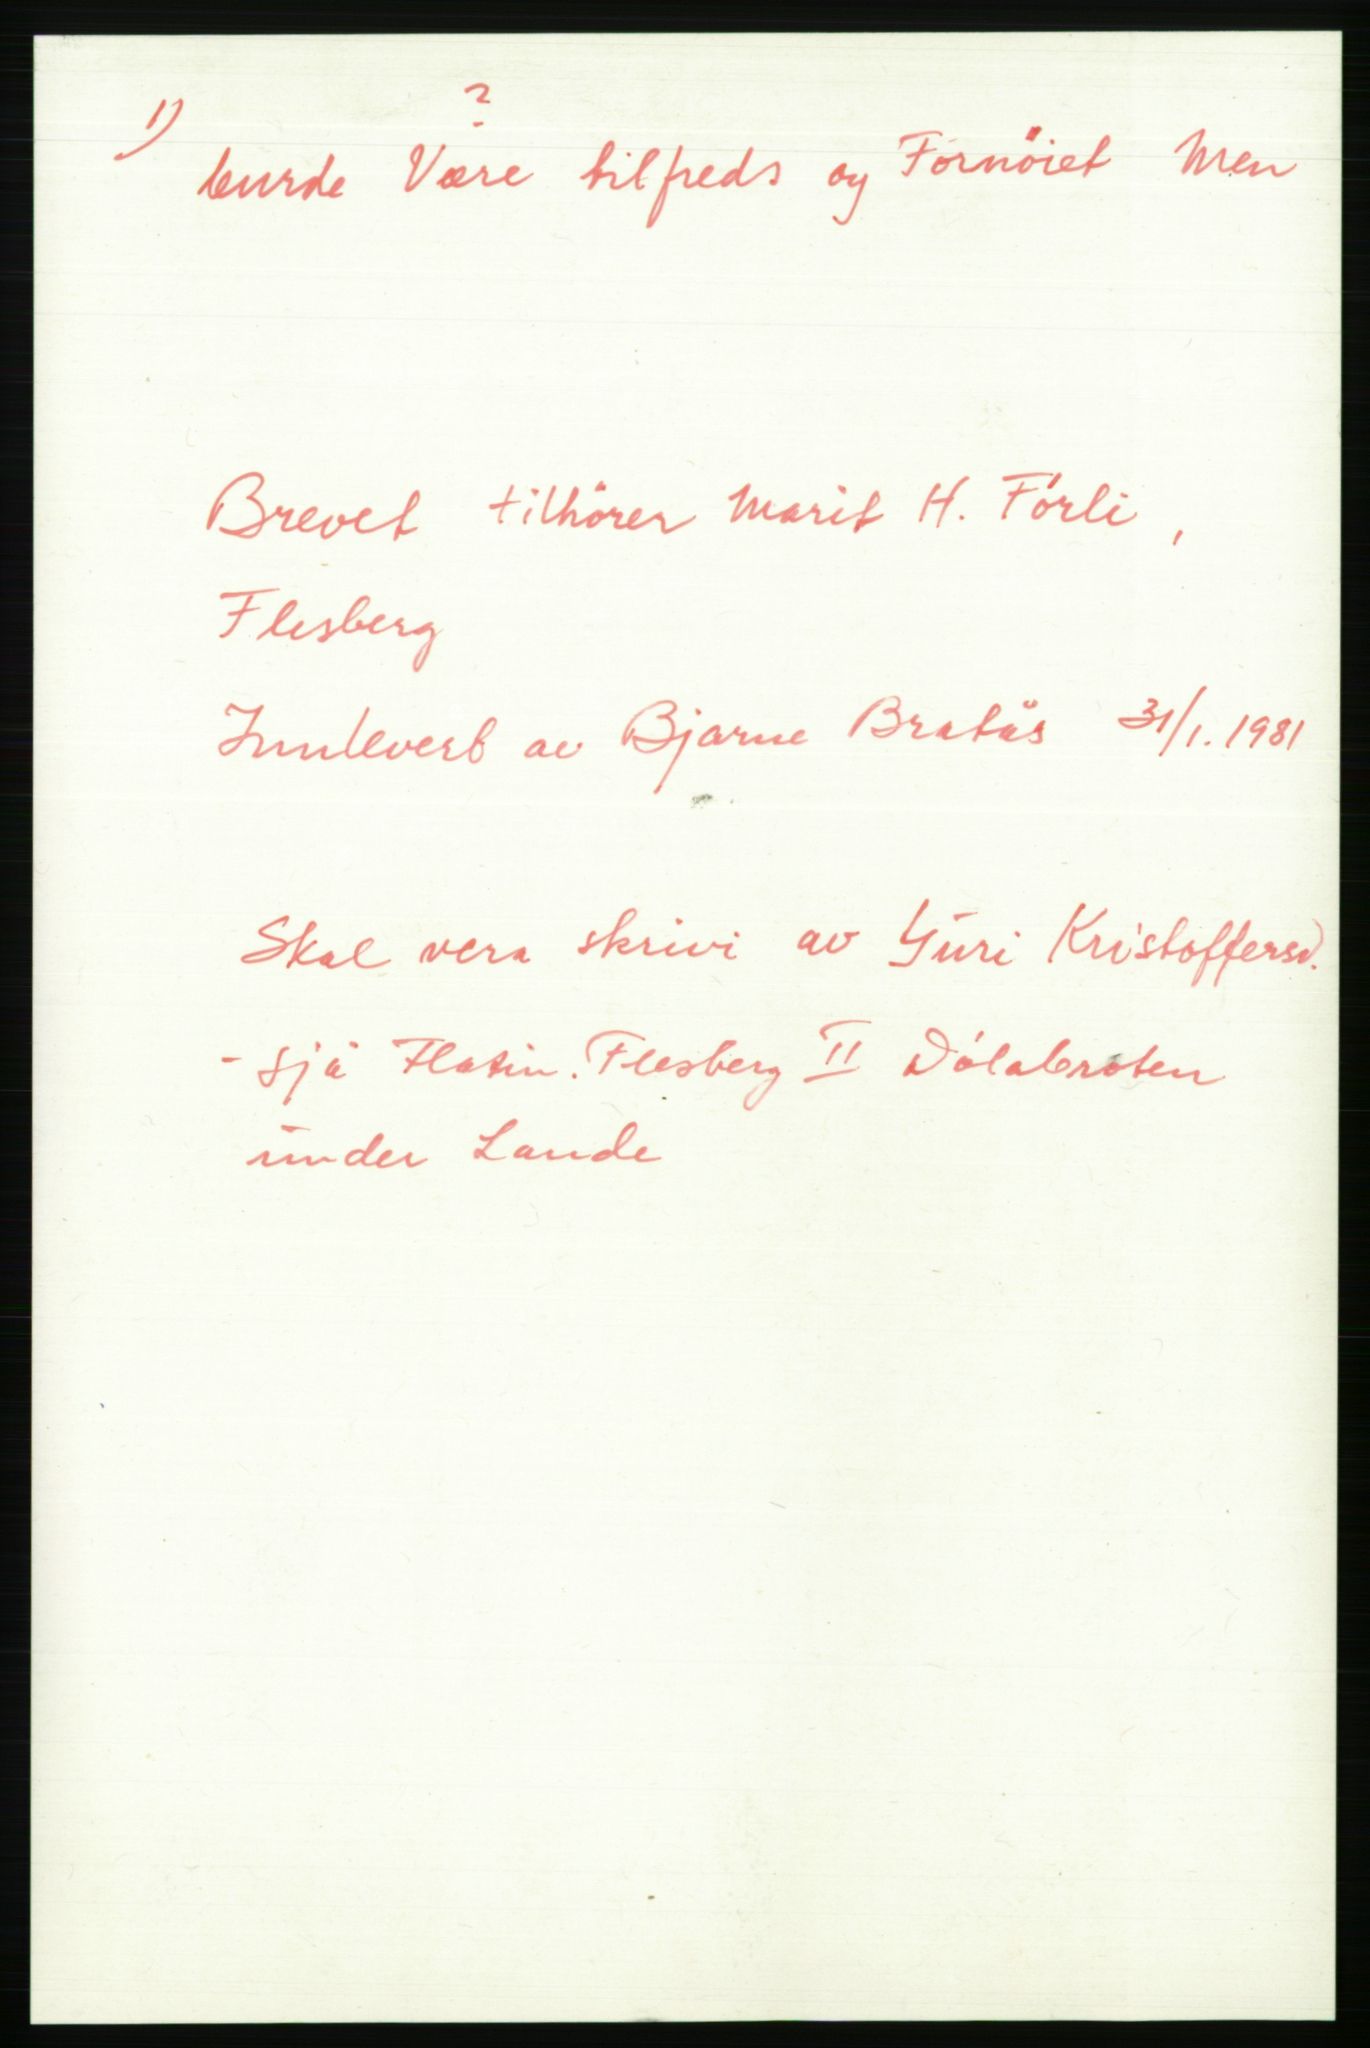 ?
1) burde Være tilfreds og Fornöiet Men
Brevet tilhörer Marit H. Förli,
Flesberg
Innlevert av Bjarne Bratås 31/1. 1981
Skal vera skrivi av Guri Kristoffersd.
- sjå Flatin. Flesberg II Dölabroten
under Lande